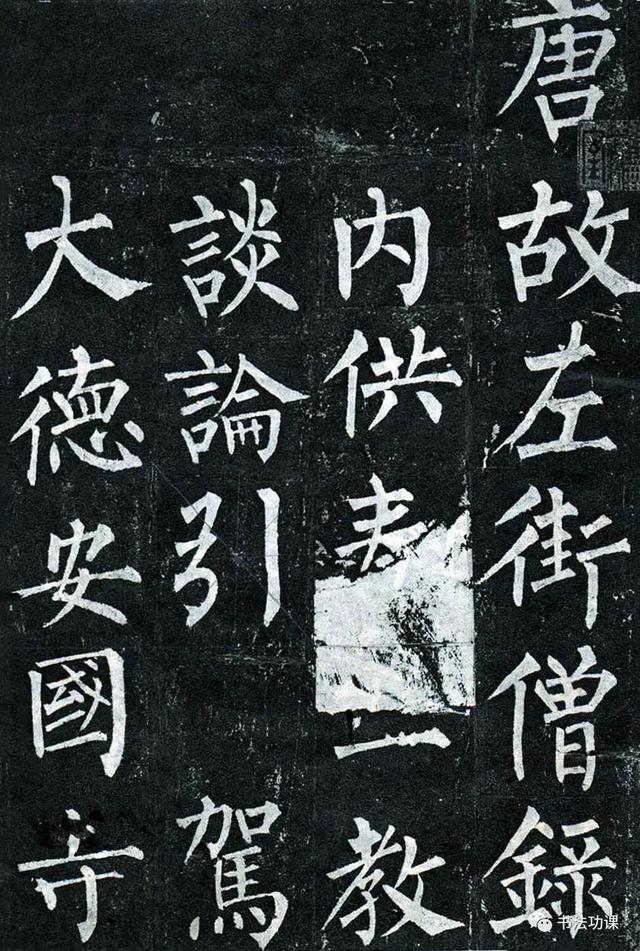 唐故左街僧錄
内供奉教
談論引駕
大德安國寺
书法功课